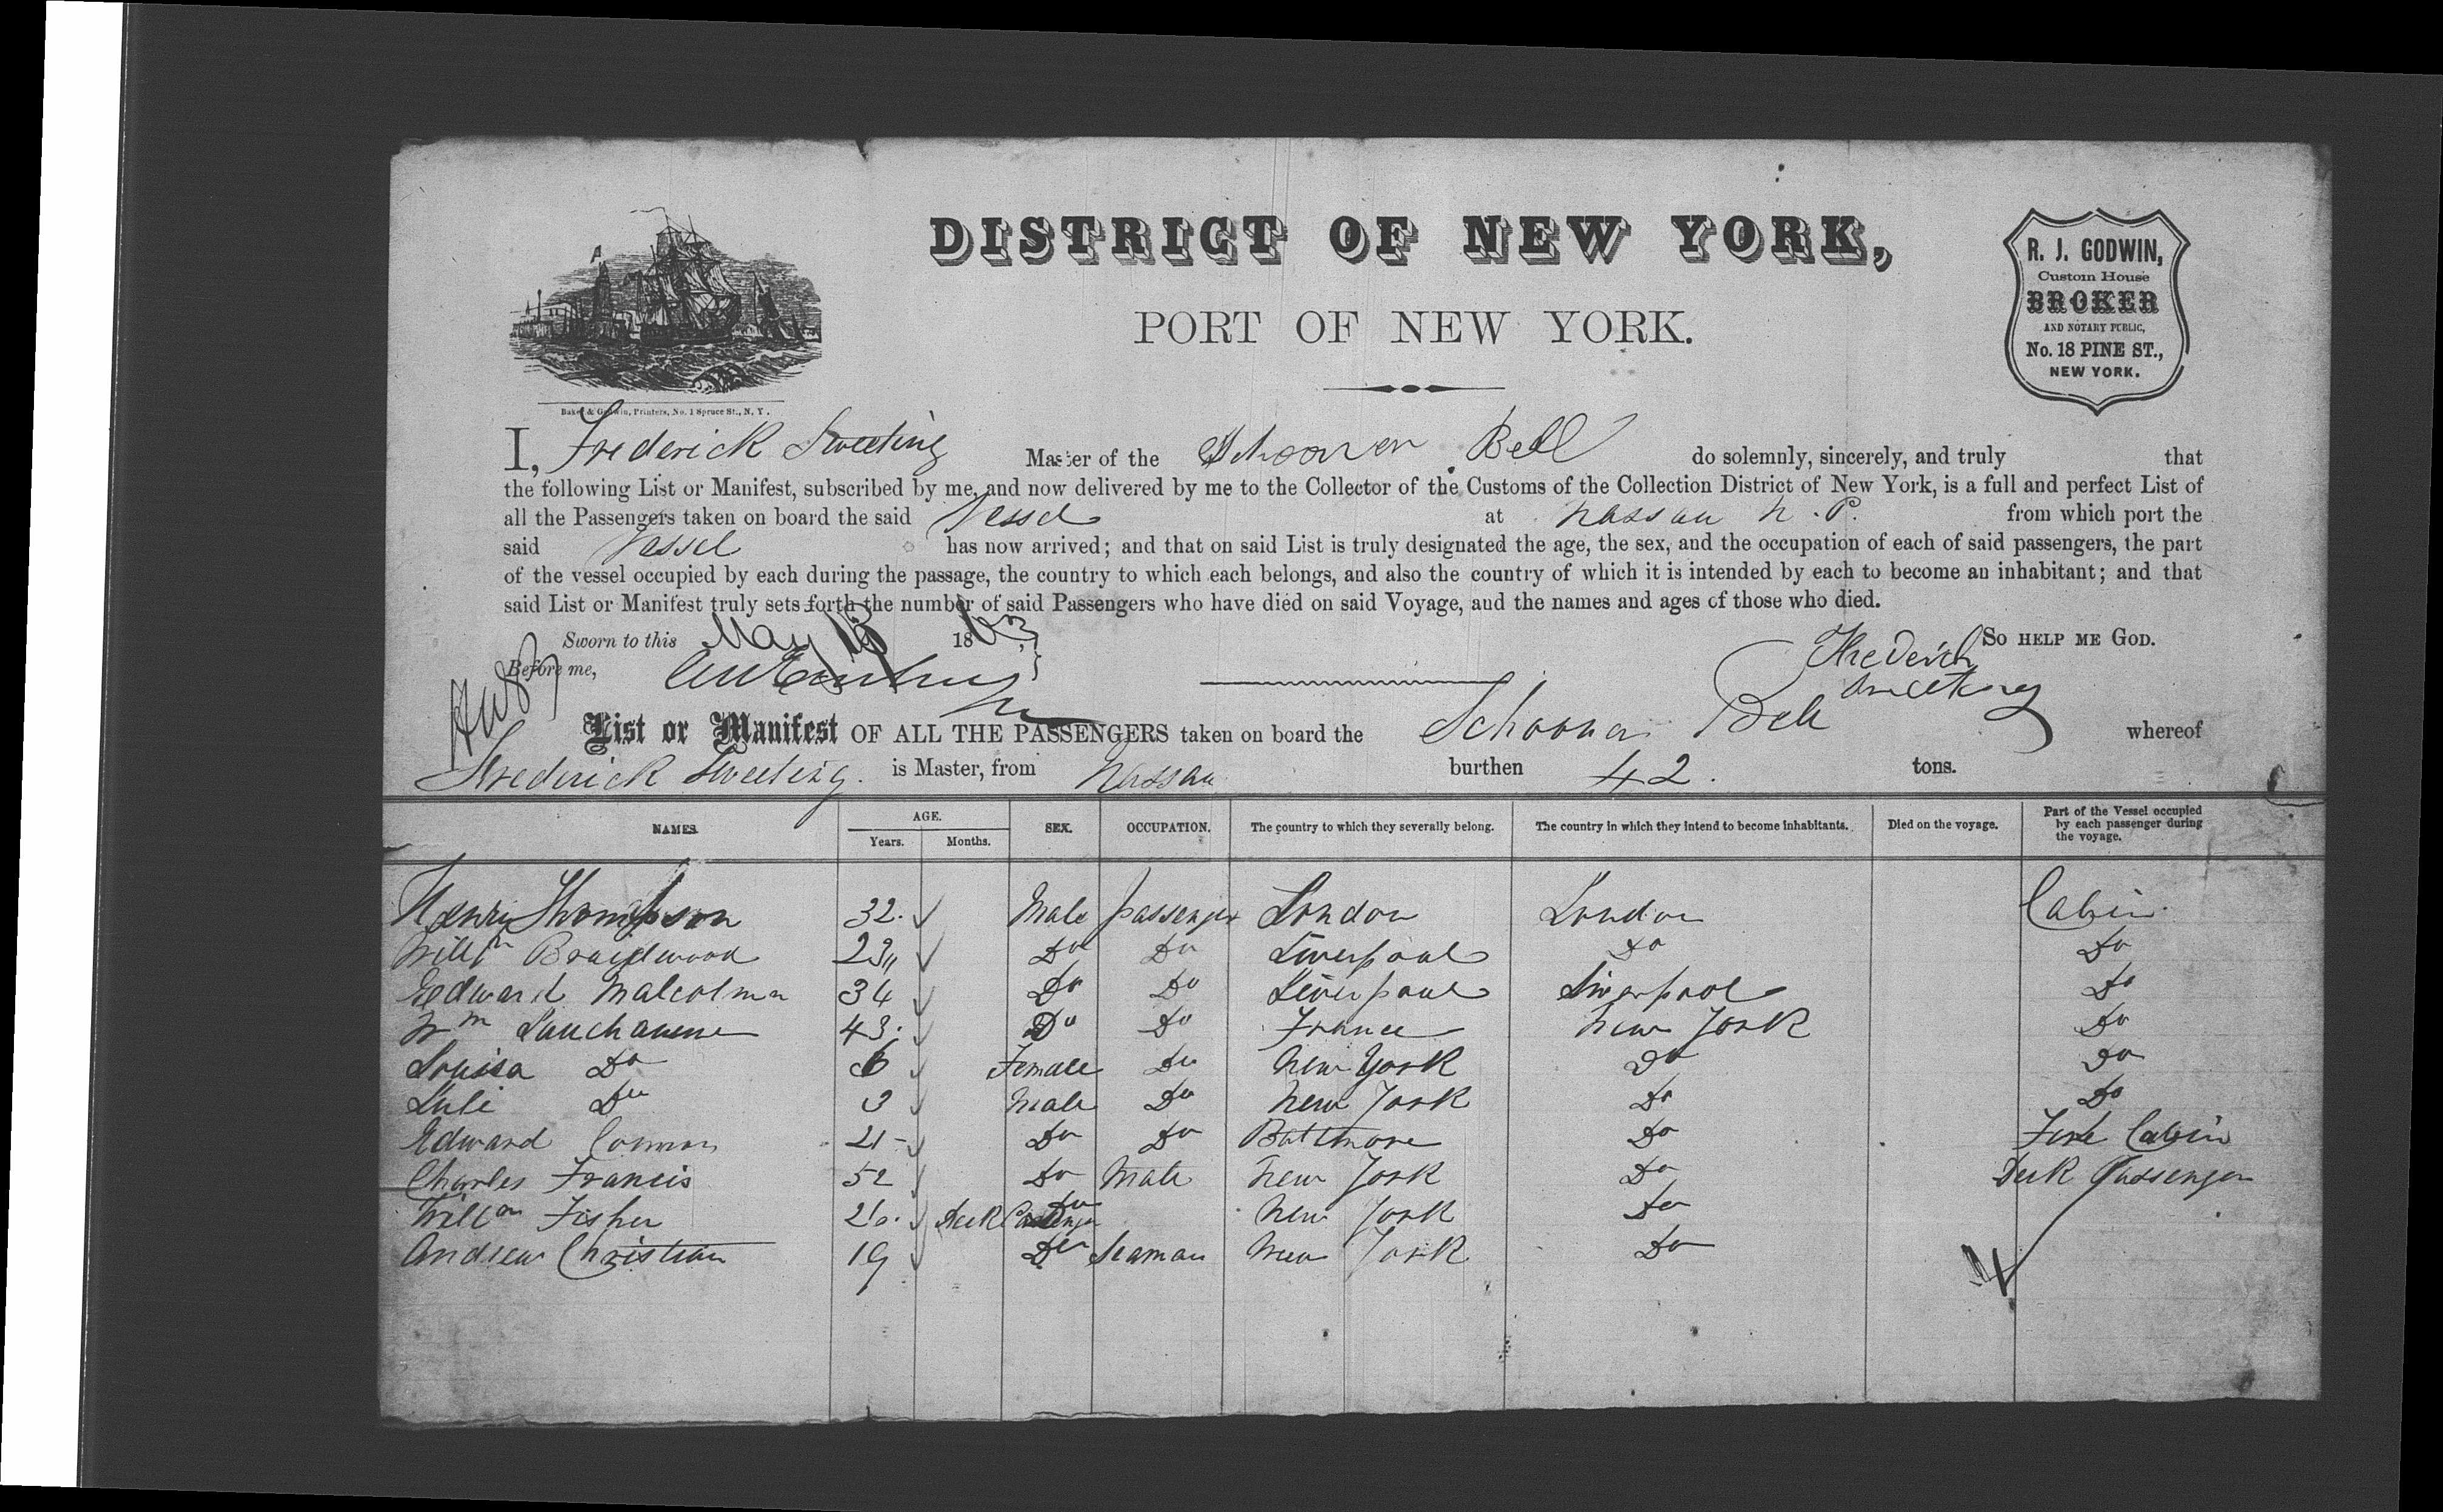 DISTRICT OF NEW YORK,
PORT OF NEW YORK.
R. J. GODWIN,
Custom House
BROKER
AND NOTARY PUBLIC,
No. 18 PINE ST.,
NEW YORK.
Baker & Godwin, Printers, No. 1 Spruce St., N. Y.
I, Frederick Sweeting Master of the Schooner Bell do solemnly, sincerely, and truly that
the following List or Manifest, subscribed by me, and now delivered by me to the Collector of the Customs of the Collection District of New York, is a full and perfect List of
all the Passengers taken on board the said Vessel at Nassau N. P. from which port the
said Vessel has now arrived; and that on said List is truly designated the age, the sex, and the occupation of each of said passengers, the part
of the vessel occupied by each during the passage, the country to which each belongs, and also the country of which it is intended by each to become an inhabitant; and that
said List or Manifest truly sets forth the number of said Passengers who have died on said Voyage, and the names and ages of those who died.
Sworn to this May 18 1863 SO HELP ME GOD.
Before me, Frederick Sweeting
List or Manifest OF ALL THE PASSENGERS taken on board the Schooner Bell whereof
Frederick Sweeting. is Master, from Nassau burthen 42. tons.
NAMES. AGE. Years. Months. SEX. OCCUPATION. The country to which they severally belong. The country in which they intend to become inhabitants. Died on the voyage. Part of the Vessel occupied by each passenger during the voyage.
Henry Thompson 32. Male passenger London London Cabin.
Willm Braidwood 23 Do Do Liverpool Do Do
Edward Malcolm 34 Do Do Liverpool Liverpool Do
Wm 43. Do Do France New York Do
Louisa Do 6 Female Do New York Do Do
Do 3 Male Do New York Do Do
Edward 21 Do Do Baltimore Do Cabin
Charles Francis 52 Do Male New York Do Deck Passenger
Willm Fisher 26. Deck Passenger Do New York Do
Andrew Christian 19 Do Seaman New York Do